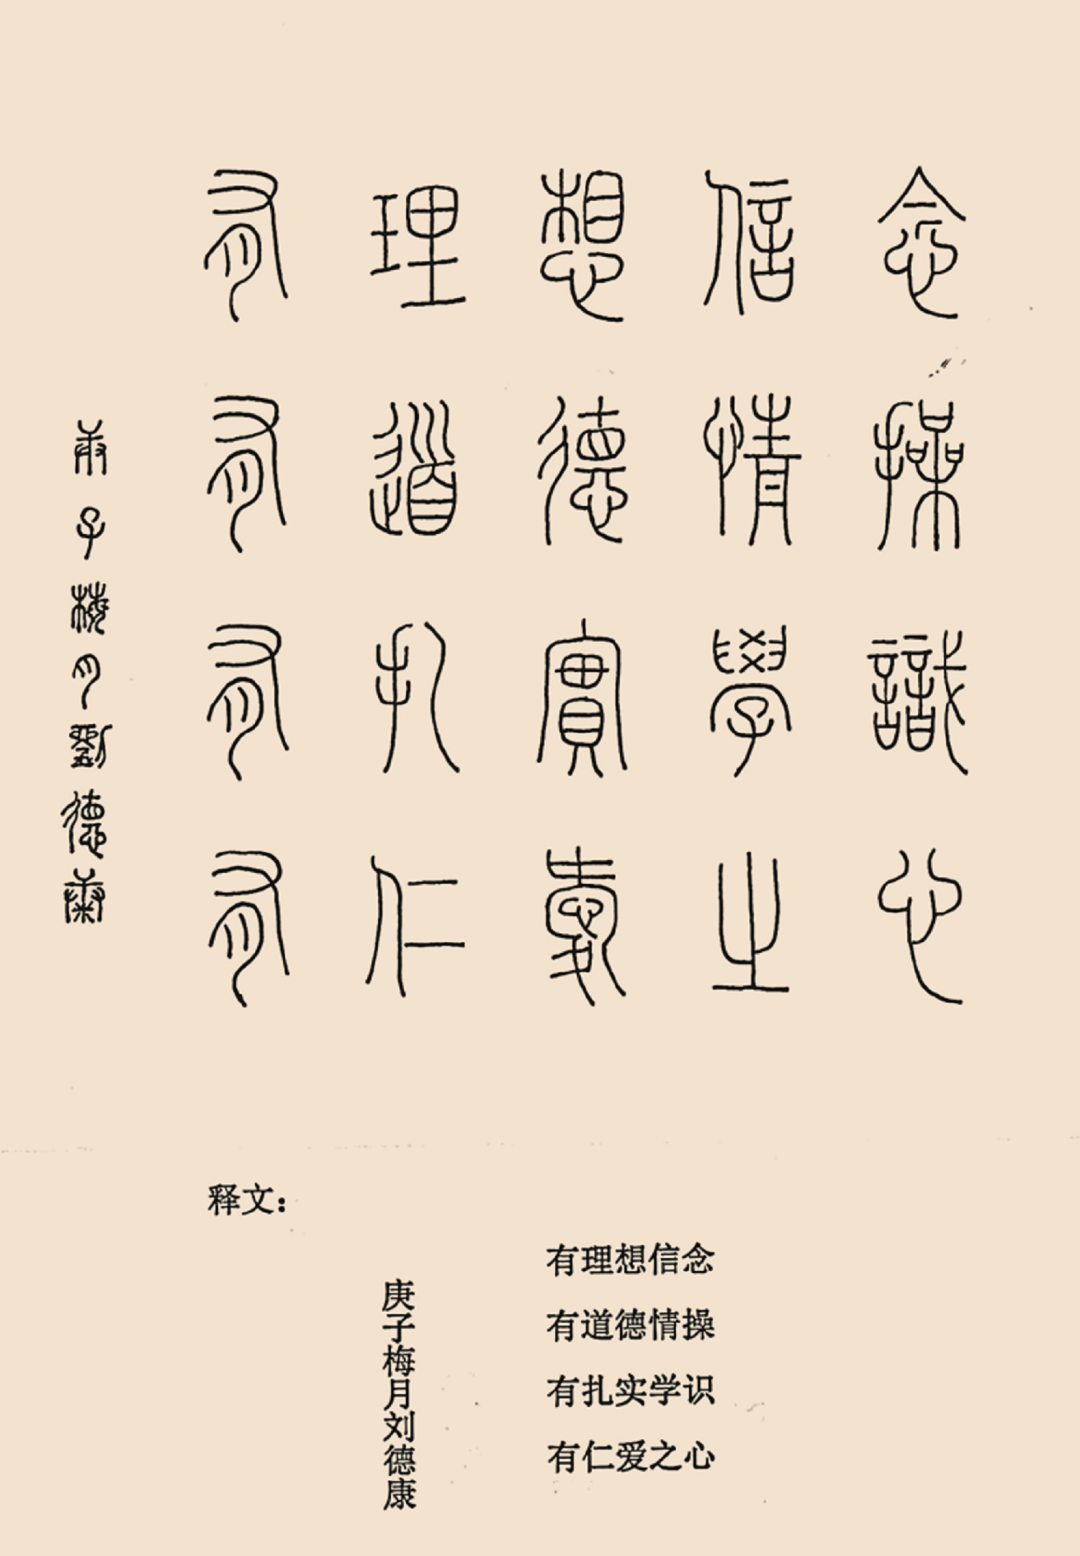 有理想信念
有道德情操
有扎實學識
有仁愛之心
庚子梅月劉德康
释文：
有理想信念
有道德情操
有扎实学识
有仁爱之心
庚子梅月刘德康